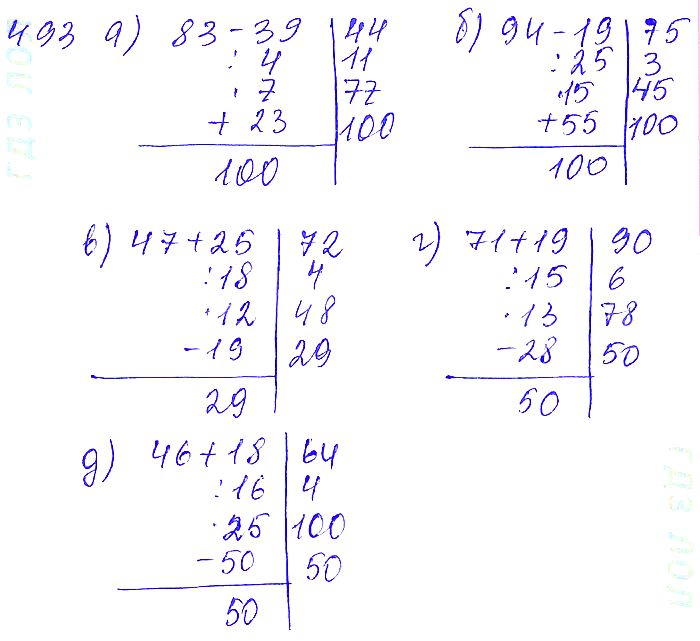 493 а) 83 - 39 | 44
: 4 | 11
· 7 | 77
+ 23 | 100
100
б) 94 - 19 | 75
: 25 | 3
·15 | 45
+55 | 100
100
в) 47+25 | 72
:18 | 4
·12 | 48
-19 | 29
29
г) 71+19 | 90
:15 | 6
·13 | 78
-28 | 50
50
д) 46+18 | 64
:16 | 4
·25 | 100
-50 | 50
50
гдз лол
гдз лол